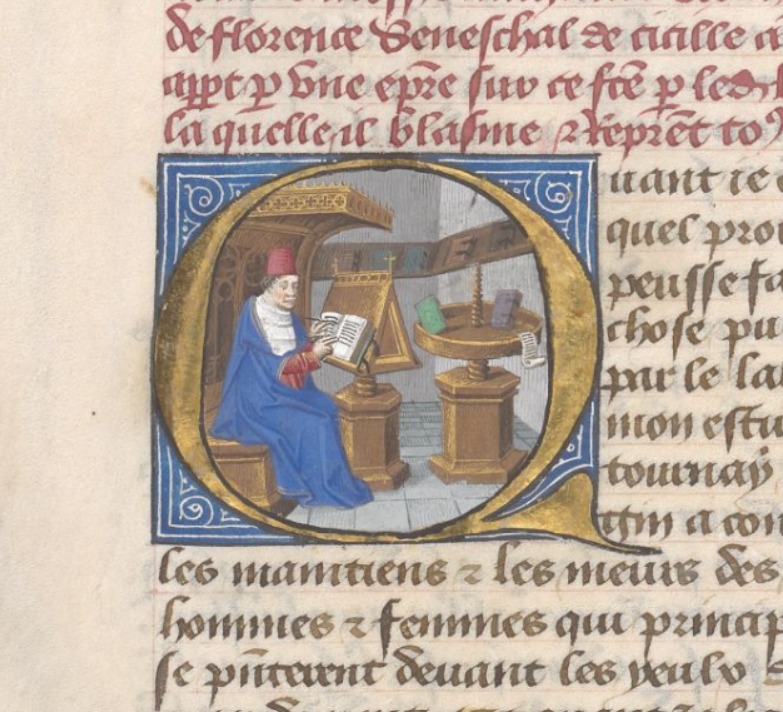 de florence Seneschal de cicille
appt p vne epre sur ce fce p le
la quelle il blasme & reprēt to
Quant ie
quel prou
peusse fa
chose pu
par le la
mon estu
tournay
les maintiens & les meurs des
hommes & femmes qui princip
se pnterent deuant les yeulx